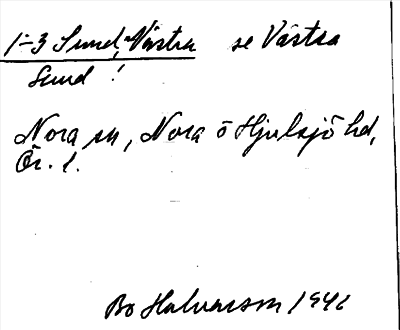 1-3 Sund, Västra se Västra
Sund !
Nora sn, Nora o Hjulsjö hd,
Ör. l.
Bo Halvarsson 1941